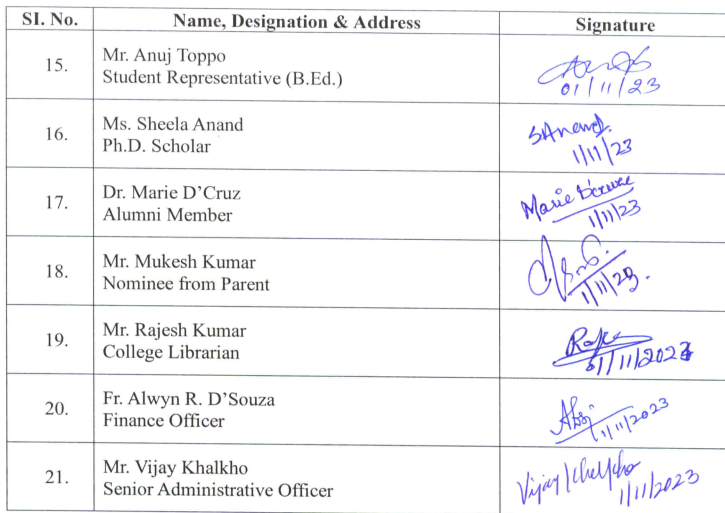 SI. No. Name, Designation & Address Signature
15. Mr. Anuj Toppo
Student Representative (B.Ed.)
01/11/23
16. Ms. Sheela Anand
Ph.D. Scholar
SAnand.
1/11/23
17. Dr. Marie D'Cruz
Alumni Member
Marie D'cruz
1/11/23
18. Mr. Mukesh Kumar
Nominee from Parent
1/11/23.
19. Mr. Rajesh Kumar
College Librarian
01/11/2023
20. Fr. Alwyn R. D'Souza
Finance Officer
1/11/2023
21. Mr. Vijay Khalkho
Senior Administrative Officer
Vijay Khalkho
1/11/2023